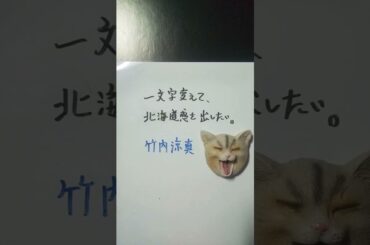 一文字変えて、
北海道感を出したい。
竹内涼真
竹内